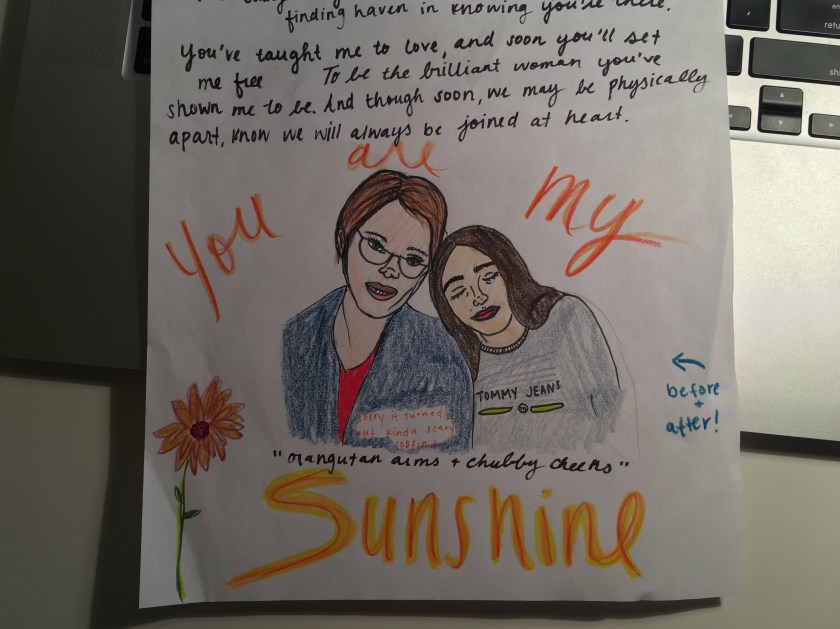 finding haven in knowing you're there.
You've taught me to love, and soon you'll set
me free To be the brilliant woman you've
shown me to be. And though soon, we may be physically
apart, know we will always be joined at heart.
You are my
TOMMY JEANS
before
+
after!
sorry it turned
out kinda scary
lookin?
"orangutan arms + chubby cheeks"
Sunshine